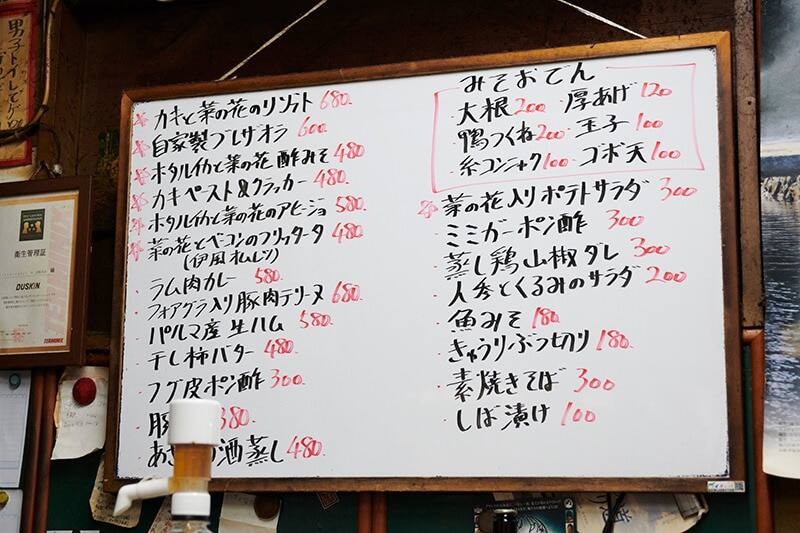 カキと菜の花のリゾット 680.
自家製ブレザオラ 600.
ホタルイカと菜の花 酢みそ 480
カキペースト&クラッカー 480.
ホタルイカと菜の花のアヒージョ 580.
菜の花とベーコンのフリッタータ 480
(伊風オムレツ)
ラム肉カレー 580.
フォアグラ入り豚肉テリーヌ 680.
パルマ産生ハム 580.
干し柿バター 480.
フグ皮ポン酢 300.
豚 380.
あさ 酒蒸し 480.
みそおでん
大根 200 厚あげ 120
鴨つくね 200 玉子 100
糸コンニャク 100 ゴボ天 100
菜の花入りポテトサラダ 300
ミミガーポン酢 300
蒸し鶏山椒ダレ 300
人参とくるみのサラダ 200
魚みそ 180
きゅうりぶつ切り 180.
素焼きそば 300
しば漬け 100
男子トイレで
衛生管理証
DUSKIN